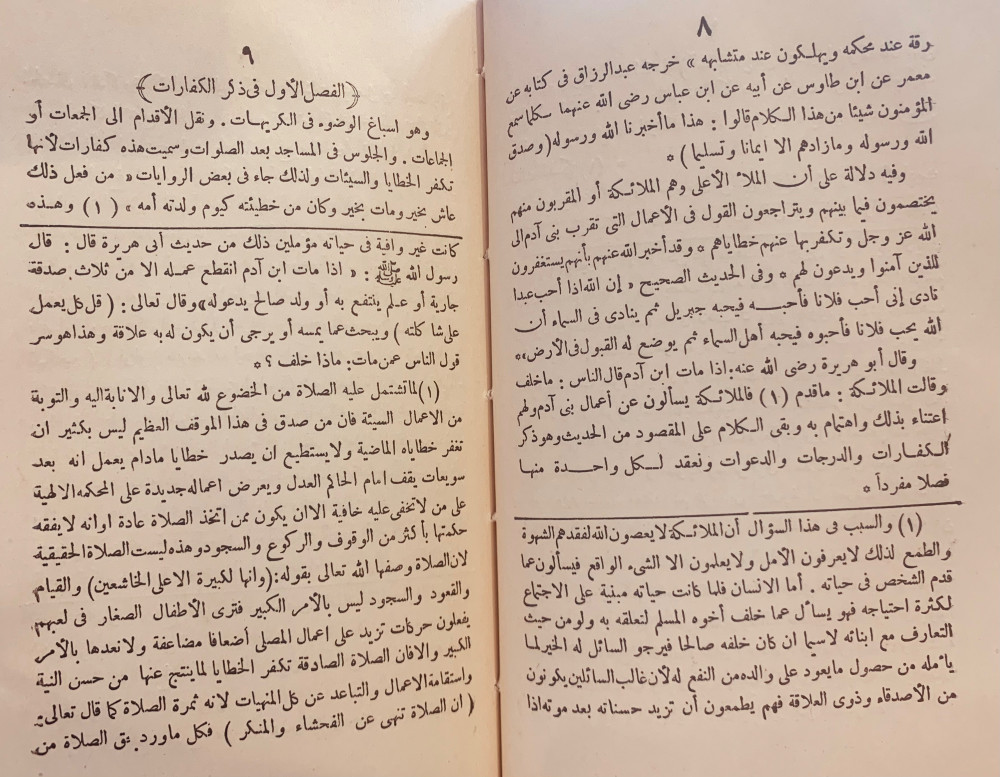 ٨
رقة عند محكمه ويهلكون عند متشابهه » خرجه عبدالرزاق فى كتابه عن
معمر عن ابن طاوس عن أبيه عن ابن عباس رضى الله عنهما سكلما سمع
المؤمنون شيئا من هذا الكلام قالوا : هذا ما أخبرنا الله ورسوله ( وصدق
الله ورسوله ومازادهم الا ايمانا وتسليما ) *
وفيه دلالة على أن الملأ الأعلى وهم الملائكة أو المقربون منهم
يختصمون فيما بينهم ويتراجعون القول فى الأعمال التى تقرب بنى آدم الى
الله عز وجل وتكفر بها عنهم خطاياهم * وقد أخبر الله عنهم بأنهم يستغفرون
للذين آمنوا ويدعون لهم * وفى الحديث الصحيح « إن الله اذا أحب عبدا
نادى إنى أحب فلانا فأحبــه فيحبه جبريل ثم ينادى فى السماء أن
الله يحب فلانا فأحبوه فيحبه أهل السماء ثم يوضع له القبول فى الأرض » *
وقال أبو هريرة رضى الله عنه : اذا مات ابن آدم قال الناس : ماخلف
وقالت الملائكة : ماقدم (١) فالملائكة يسألون عن أعمال بنى آدم ولهم
اعتناء بذلك واهتمام به وبقى الكلام على المقصود من الحديث وهو ذكر
الكفارات والدرجات والدعوات ونعقد لكل واحدة منها
فصلا مفرداً *
(١) والسبب فى هذا السؤال أن الملائكة لا يعصون الله لفقدهم الشهوة
والطمع لذلك لا يعرفون الأمل ولا يعلمون الا الشىء الواقع فيسألون عما
قدم الشخص فى حياته . أما الانسان فلما كانت حياته مبنية على الاجتماع
لكثرة احتياجه فهو يسأل عما خلف أخوه المسلم لتعلقه به ولو من حيث
التعارف مع ابنائه لاسيما ان كان خلفه صالحا فيرجو السائل له الخير لما
يأمله من حصول مايعود على والده من النفع له لأن غالب السائلين يكونون
من الأصدقاء وذوى العلاقة فهم يطمعون أن تزيد حسناته بعد موته اذا
٩
﴿ الفصل الأول فى ذكر الكفارات ﴾
وهو اسباغ الوضوء فى الكريهات . ونقل الأقدام الى الجمعات أو
الجماعات . والجلوس فى المساجد بعد الصلوات وسميت هذه كفارات لأنها
تكفر الخطايا والسيئات ولذلك جاء فى بعض الروايات « من فعل ذلك
عاش بخير ومات بخير وكان من خطيئته كيوم ولدته أمه » (١) وهذه
كانت غير وافية فى حياته مؤملين ذلك من حديث أبى هريرة قال : قال
رسول الله ﷺ : « اذا مات ابن آدم انقطع عمله الا من ثلاث صدقة
جارية أو علم ينتفع به أو ولد صالح يدعوله » وقال تعالى : ( قل كل يعمل
على شاكلته ) ويبحث عما يمسه أو يرجى أن يكون له به علاقة وهذا هو سر
قول الناس عمن مات : ماذا خلف ؟ *
(١) لما تشتمل عليه الصلاة من الخضوع لله تعالى والانابة اليه والتوبة
من الاعمال السيئة فان من صدق فى هذا الموقف العظيم ليس بكثير ان
تغفر خطاياه الماضية ولا يستطيع ان يصدر خطايا مادام يعمل انه بعد
سويعات يقف امام الحاكم العدل ويعرض اعماله جديدة على المحكمه الالهية
على من لا تخفى عليه خافية الا ان يكون ممن اتخذ الصلاة عادة اوانه لا يفقه
حكمتها بأكثر من الوقوف والركوع والسجود وهذه ليست الصلاة الحقيقية
لان الصلاة وصفها الله تعالى بقوله : ( وانها لكبيرة الا على الخاشعين ) والقيام
والقعود والسجود ليس بالأمر الكبير فترى الأطفال الصغار فى لعبهم
يفعلون حركات تزيد على اعمال المصلى أضعافا مضاعفة ولا نعدها بالأمر
الكبير والا فان الصلاة الصادقة تكفر الخطايا لما ينتج عنها من حسن النية
واستقامة الاعمال والتباعد عن كل المنهيات لانه ثمرة الصلاة كما قال تعالى :
( ان الصلاة تنهى عن الفحشاء والمنكر ) فكل ماورد بحق الصلاة من